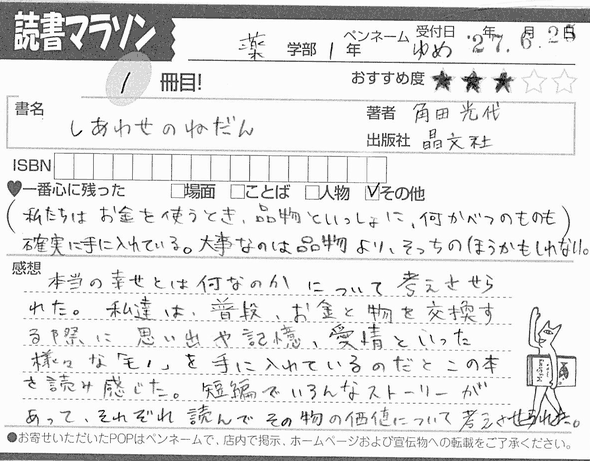 読書マラソン
薬 学部 1年 ペンネーム ゆめ 受付日 '27年6月25日
1 冊目!
おすすめ度 ★★★☆☆
書名 しあわせのねだん
著者 角田光代
出版社 晶文社
ISBN
♥一番心に残った □場面 □ことば □人物 ☑その他
(私たちは お金を使うとき、品物といっしょに、何かべつのものも)
確実に手に入れている。大事なのは品物より、そっちのほうかもしれない。
感想
本当の幸せとは何なのか について 考えさせら
れた。私達は、普段、お金と物を交換す
る際に 思い出や記憶、愛情といった
様々な「モノ」を手に入れているのだとこの本
を読み感じた。短編でいろんなストーリーが
あって、それぞれ読んでその物の価値について考えさせられた。
●お寄せいただいたPOPはペンネームで、店内で掲示、ホームページおよび宣伝物への転載をご了承ください。